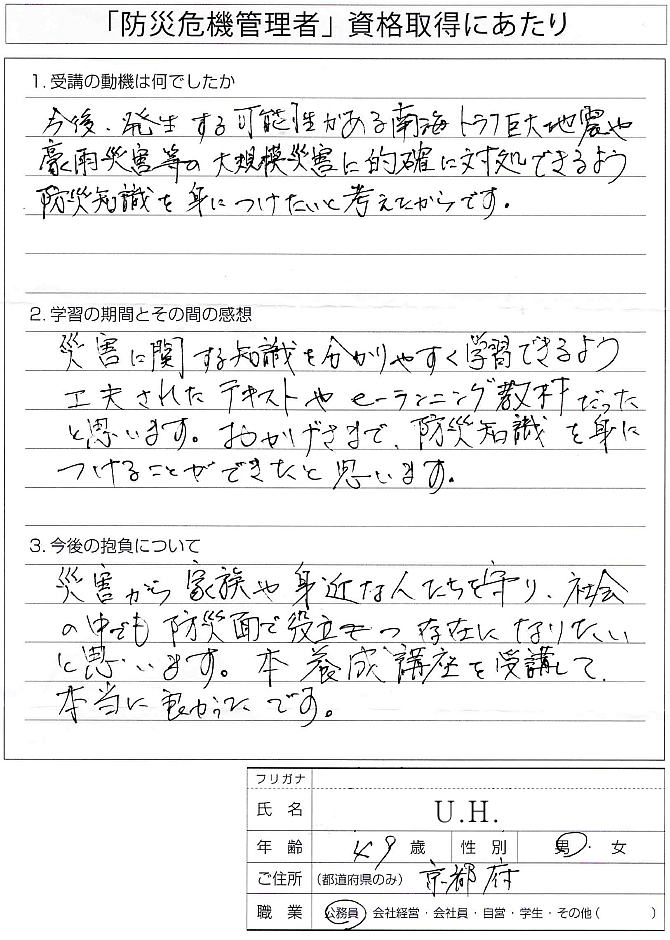 「防災危機管理者」資格取得にあたり
1. 受講の動機は何でしたか
今後、発生する可能性がある南海トラフ巨大地震や
豪雨災害等の大規模災害に的確に対処できるよう
防災知識を身につけたいと考えたからです。
2. 学習の期間とその間の感想
災害に関する知識を分かりやすく学習できるよう
工夫されたテキストやeーランニング教材だった
と思います。おかげさまで、防災知識を身に
つけることができたと思います。
3. 今後の抱負について
災害から家族や身近な人たちを守り、社会
の中でも防災面で役立つ存在になりたい
と思います。本養成講座を受講して、
本当に良かったです。
フリガナ
氏名 U.H.
年齢 49歳 性別 男・女
ご住所 (都道府県のみ) 京都府
職業 公務員 会社経営・会社員・自営・学生・その他( )